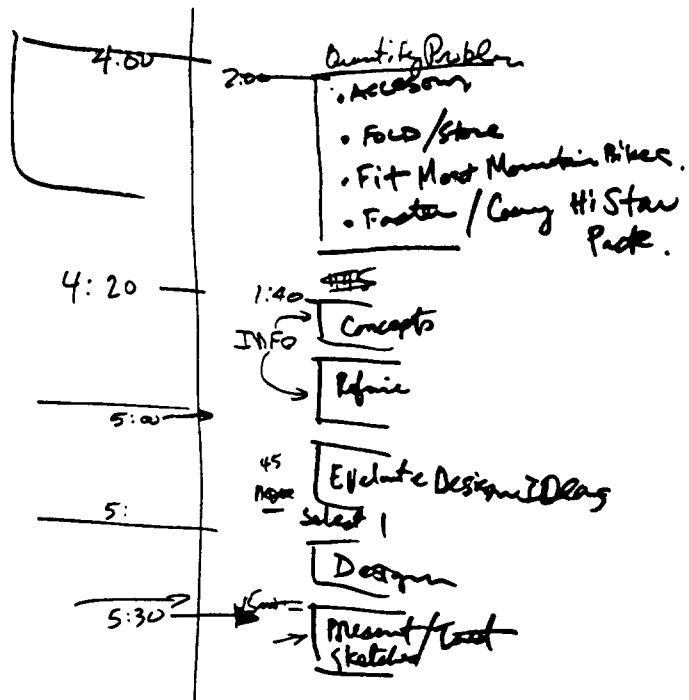 4:00
2:00
Quantify Problem
• Accessory
• FOLD/Store
• Fit Most Mountain Bikes.
• Fasten / Carry Hi Star
Pack.
4:20
1:40
INFO
Concepts
Refine
5:00
45
Evaluate Design IDeas
5:
Select 1
Design
5:30
15min
Present/
Sketches